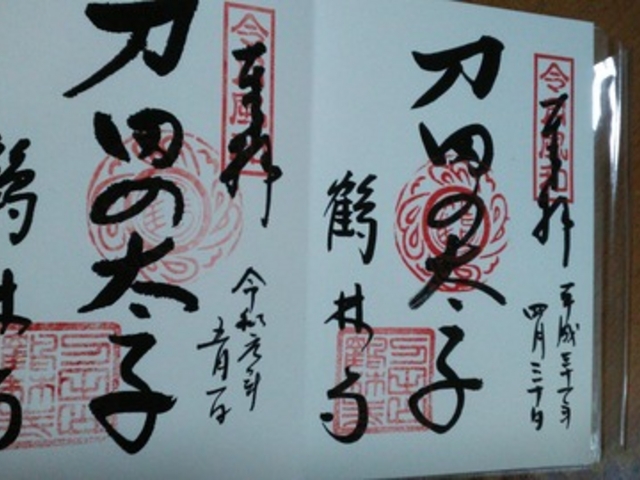 奉拝
平成三十一年
四月三十日
刀田の太子
鶴林寺
奉拝
令和元年
五月一日
刀田の太子
鶴林寺